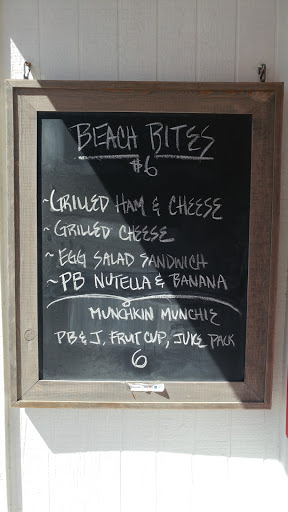 BEACH BITES
$6
~GRILLED HAM & CHEESE
~GRILLED CHEESE
~EGG SALAD SANDWICH
~PB NUTELLA & BANANA
MUNCHKIN MUNCHIE
PB & J, FRUIT CUP, JUKE PACK
6